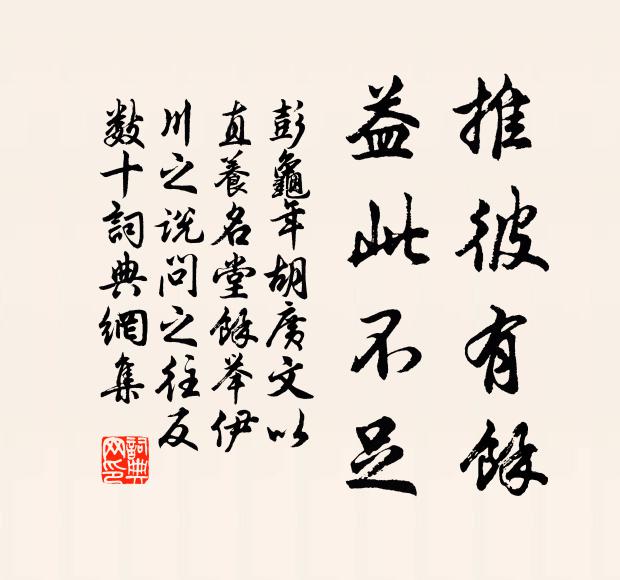 推彼有餘
益此不足
彭龜年胡廣文以
直養名堂餘举伊
川之说問之往反
数十詞典網集
詞典
网印